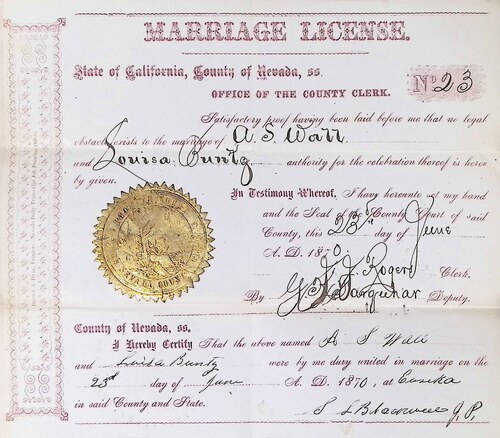 MARRIAGE LICENSE.
State of California, County of Nevada, ss.
No 23
OFFICE OF THE COUNTY CLERK.
Satisfactory proof having been laid before me that no legal
obstacle exists to the marriage of A. S. Wall
and Louisa Buntz authority for the celebration thereof is here
by given.
In Testimony Whereof, I have hereunto set my hand
and the Seal of the County Court of said
County, this 23d day of June
A. D. 1870.
Rogers Clerk.
By G. Farquhar Deputy.
County of Nevada, ss.
I Hereby Certify That the above named A S Wall
and Louisa Buntz were by me duly united in marriage on the
23d day of June A. D. 1870, at Eureka
in said County and State.
J. P.